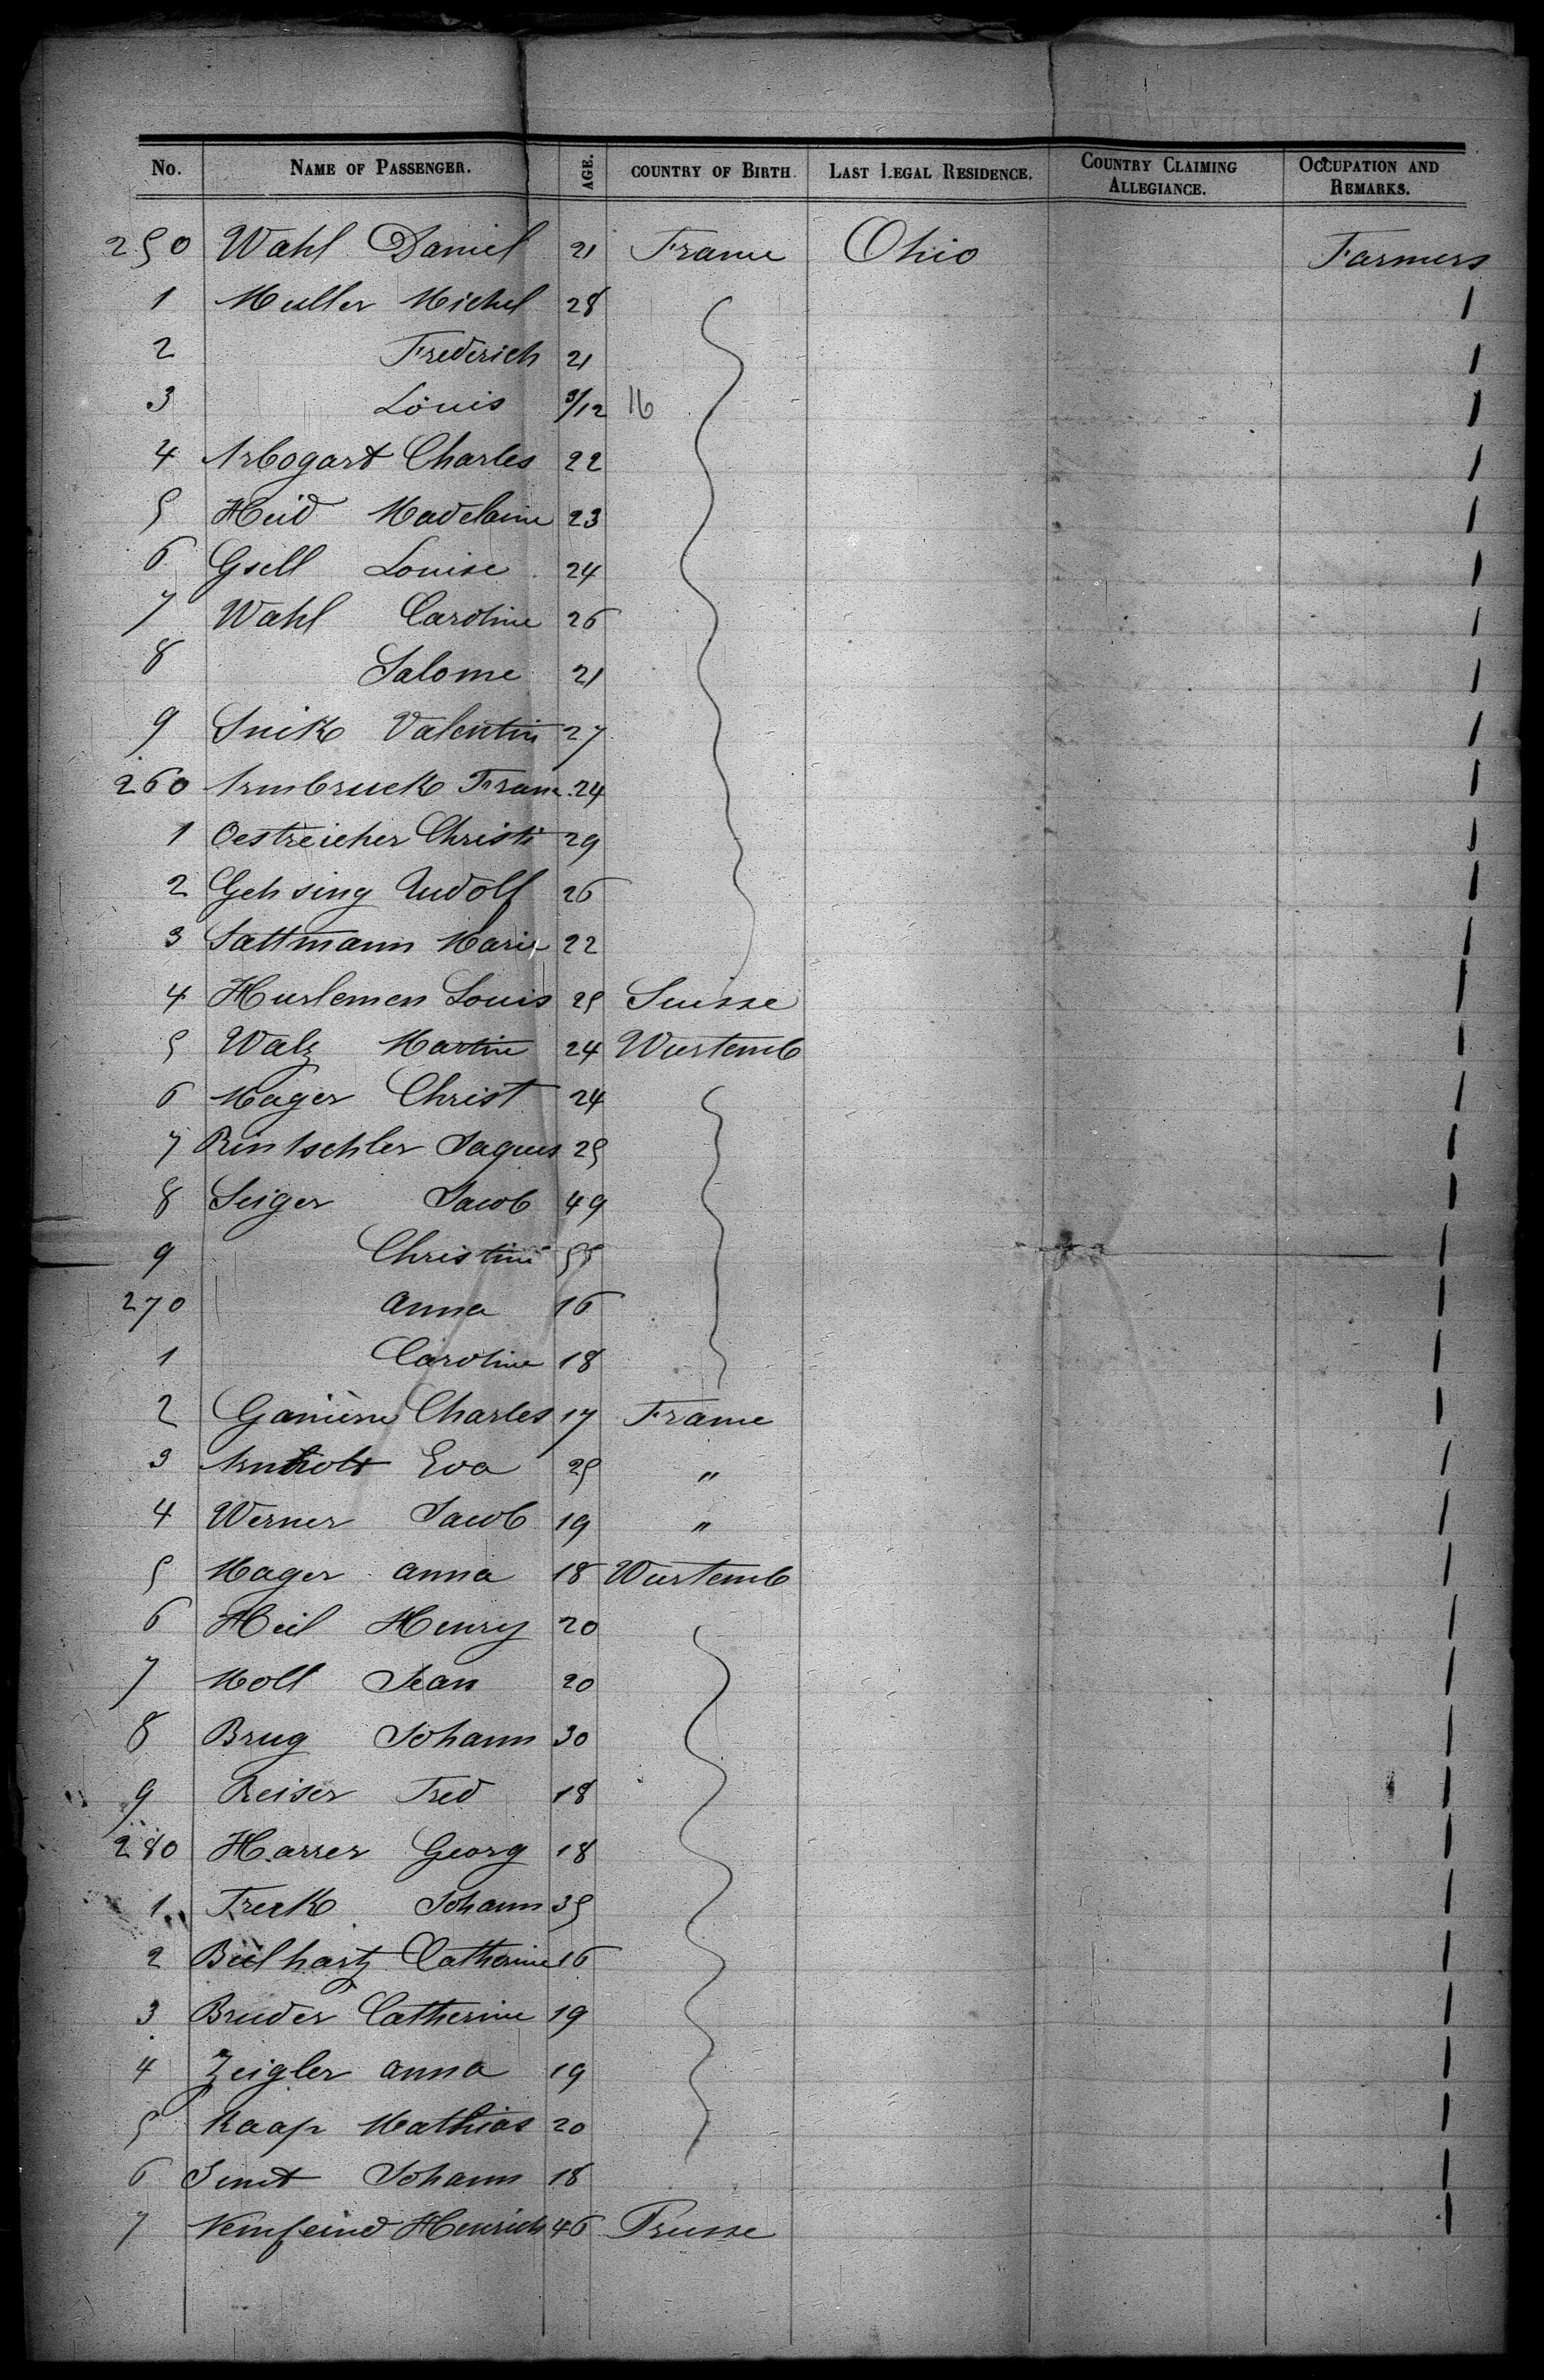 No. NAME OF PASSENGER. AGE. COUNTRY OF BIRTH. LAST LEGAL RESIDENCE. COUNTRY CLAIMING ALLEGIANCE. OCCUPATION AND REMARKS.
250 Wahl Daniel 21 France Ohio Farmers
1 Muller Michel 28
2 Frederich 21
3 Louis 9/12 16
4 Arbogart Charles 22
5 Heid Madelaine 23
6 Gsell Louise 24
7 Wahl Caroline 26
8 Salome 21
9 Valentin 27
260 Armbruck Franc 24
1 Oestreicher Christi 29
2 Gehsing Rudolf 26
3 Sattmann Marie 22
4 Hurlemen Louis 25 Suisse
5 Walz Martin 24 Wurtemb
6 Mager Christ 24
7 Rintschler Jaques 25
8 Seiger Jacob 49
9 Christine 55
270 Anna 16
1 Caroline 18
2 Ganière Charles 17 France
3 Eva 25 "
4 Werner Jacob 19 "
5 Mager Anna 18 Wurtemb
6 Heil Henry 20
7 Moll Jean 20
8 Brug Johann 30
9 Reiser Fred 18
280 Harrer Georg 18
1 Freck Johann 35
2 Beilhartz Catherine 16
3 Bruder Catherine 19
4 Zeigler Anna 19
5 Kaap Mathias 20
6 Johann 18
7 Heinrich 46 Prusse